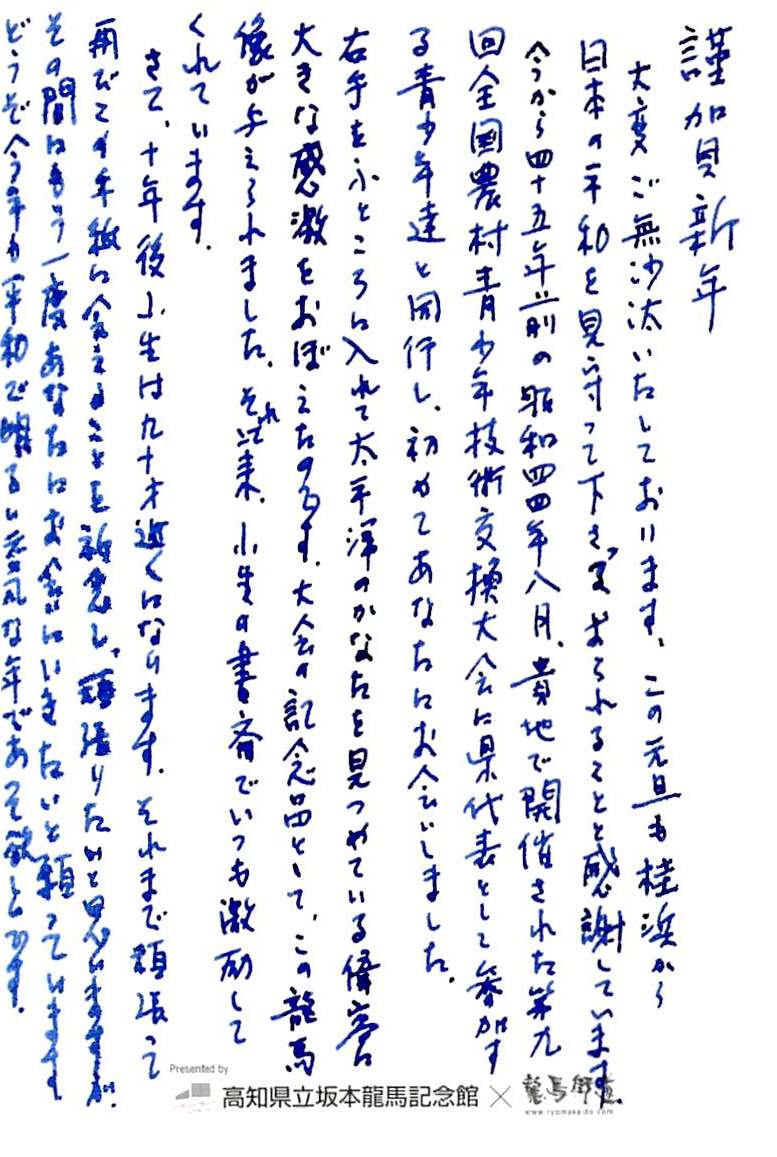 謹賀新年
大変ご無沙汰いたしております。この元旦も桂浜から
日本の平和を見守って下さっておられることと感謝しています。
今から四十五年前の昭和四四年八月、貴地で開催された第九
回全国農村青少年技術交換大会に県代表として参加す
る青少年達と同行し、初めてあなたにお会いしました。
右手をふところに入れて太平洋のかなたを見つめている偉容に
大きな感激をおぼえたのです。大会の記念品として、この龍馬
像が与えられました。それ以来、小生の書斎でいつも激励して
くれています。
さて、十年後小生は九十才近くになります。それまで頑張って
再びこの年紙に会えることを祈念し、頑張りたいと思いますが、
その間にもう一度あなたにお会いにいきたいと願っています
どうぞ今年も平和で明るい元気な年であって欲しいです。
Presented by
高知県立坂本龍馬記念館 × 龍馬街道
www.ryomakaido.com